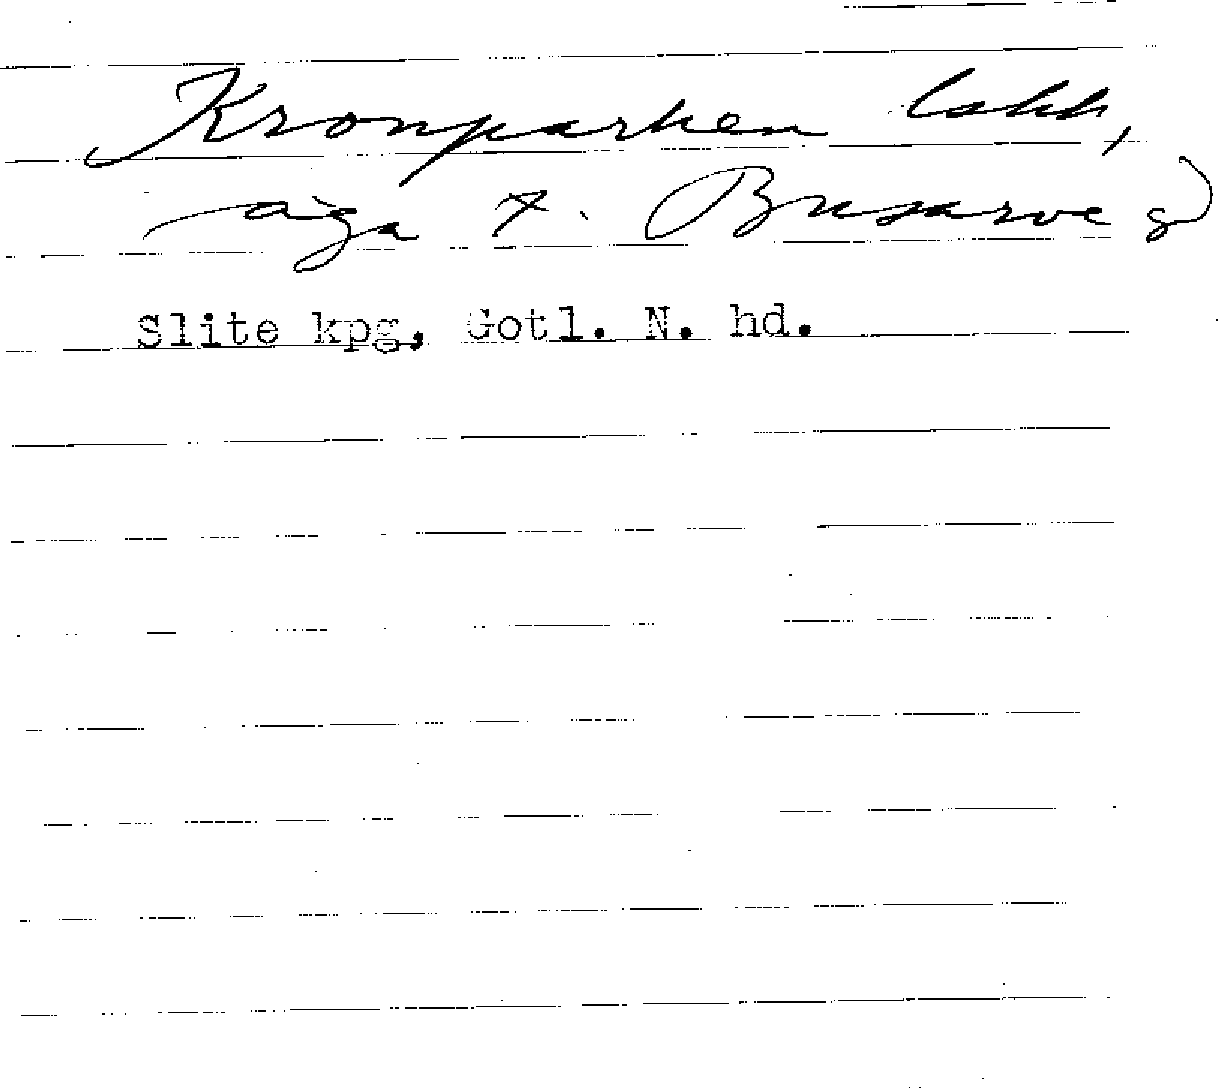 Kronparken
äga t. Busarve
Slite kpg, Gotl. N. hd.